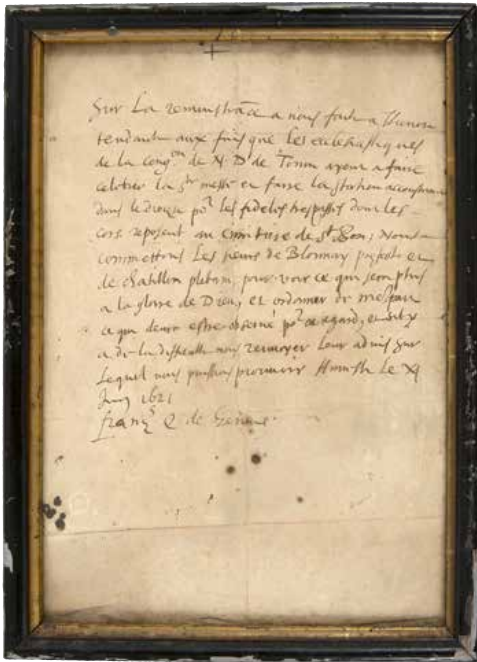 +
Sur La remonstrãce a nous faite a Thonon
tendante aux fins que les ecclesiastiques
de la Cong.on de N. D. de Tonon ayent a faire
celebrer la s.te messe et faire la station
dans le por les fideles trespasses dont les
cors reposent au cimitiere de St Bon; Nous
commettons Les sieurs de Blonnay prefect et
de chatillon plebain, pour voir ce que sera plus
a la gloire de Dieu, et ordonner de
ce que devra estre observé por ce regard, et sil y
a de la difficulté nous renvoyer leur advis sur
Lequel nous puissions prouvoir le XI
Juin 1621
Franç.s E de Geneve.